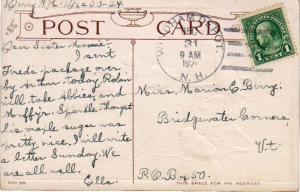 Derry N.H. - Dec 30-24.
POST CARD
WINDHAM DEPOT.
31
9 AM
192
N.H.
1 CENT 1
Dear Sister Marion:
I sent
Fred's package over
by Arthur today. Robin
will take Abbie's and
Muffy's. Sparkle thought
his maple sugar was
pretty nice. I will write
a letter Sunday. We
are all well.
Ella.
Miss. Marion E. Berry.
Bridgewater Corners
Vt.
P.O. Box 50.
THIS SPACE FOR THE ADDRESS.